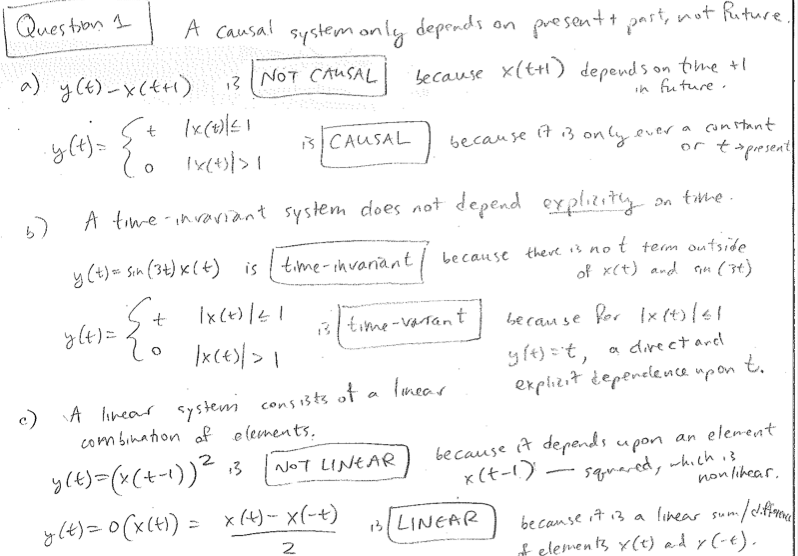 Question 1
A causal system only depends on present + past, not future.
a) y(t)-x(t+1) is NOT CAUSAL because x(t+1) depends on time +1
in future.
y(t)= { t |x(t)|≤1 is CAUSAL because it is only ever a constant
0 |x(t)|>1 or t → present
b) A time-invariant system does not depend explicitly on time.
y(t)= sin(3t)x(t) is time-invariant because there is no t term outside
of x(t) and sin(3t)
y(t)= { t |x(t)|≤1 is time-variant because for |x(t)|≤1
0 |x(t)|>1 y(t)=t, a direct and
explicit dependence upon t.
c) A linear system consists of a linear
combination of elements.
y(t)=(x(t-1))² is NOT LINEAR because it depends upon an element
x(t-1) — squared, which is
nonlinear.
y(t)=O(x(t)) = x(t)-x(-t) / 2 is LINEAR because it is a linear sum/difference
of elements x(t) and x(-t).